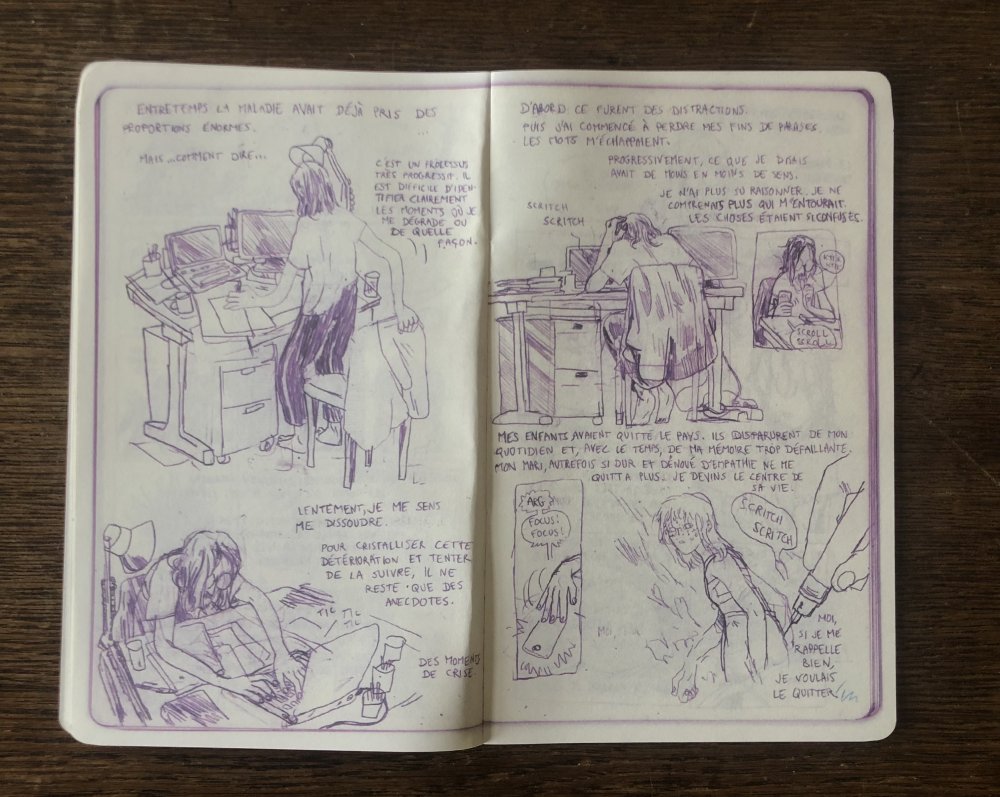 ENTRETEMPS LA MALADIE AVAIT DÉJÀ PRIS DES
PROPORTIONS ÉNORMES.
MAIS... COMMENT DIRE...
C'EST UN PROCESSUS
TRÈS PROGRESSIF. IL
EST DIFFICILE D'IDEN-
TIFIER CLAIREMENT
LES MOMENTS OÙ JE
ME DÉGRADE OU
DE QUELLE
FAÇON.
LENTEMENT, JE ME SENS
ME DISSOUDRE.
POUR CRISTALLISER CETTE
DÉTÉRIORATION ET TENTER
DE LA SUIVRE, IL NE
RESTE QUE DES
ANECDOTES.
TIC TIC
TIC
DES MOMENTS
DE CRISE.
D'ABORD CE FURENT DES DISTRACTIONS.
PUIS J'AI COMMENCÉ À PERDRE MES FINS DE PHRASES.
LES MOTS M'ÉCHAPPAIENT.
PROGRESSIVEMENT, CE QUE JE DISAIS
AVAIT DE MOINS EN MOINS DE SENS.
JE N'AI PLUS SU RAISONNER. JE NE
COMPRENAIS PLUS QUI M'ENTOURAIT.
LES CHOSES ÉTAIENT SI CONFUSES.
SCRITCH
SCRITCH
SCROLL
SCROLL
MES ENFANTS AVAIENT QUITTÉ LE PAYS. ILS DISPARURENT DE MON
QUOTIDIEN ET, AVEC LE TEMPS, DE MA MÉMOIRE TROP DÉFAILLANTE.
MON MARI, AUTREFOIS SI DUR ET DÉNOUÉ D'EMPATHIE NE ME
QUITTA PLUS. JE DEVINS LE CENTRE DE
SA VIE.
ARG
FOCUS!
FOCUS!
SCRITCH
SCRITCH
MOI,
SI JE ME
RAPPELLE
BIEN,
JE VOULAIS
LE QUITTER.